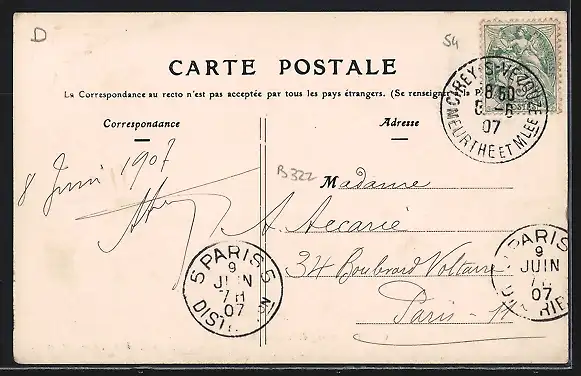 D
54
CARTE POSTALE
La Correspondance au recto n'est pas acceptée par tous les pays étrangers. (Se renseigner à la P
CIREY-S-VEZOUZE
8 50
6 -6
07
MEURTHE ET MLLE
Correspondance
Adresse
8 Juin 1907
B322
Madame
A. Accarié
34 Boulevard Voltaire
Paris - 11
5 PARIS 5
9
JUIN
7 H
07
DISTR
PARIS
9
JUIN
7
07